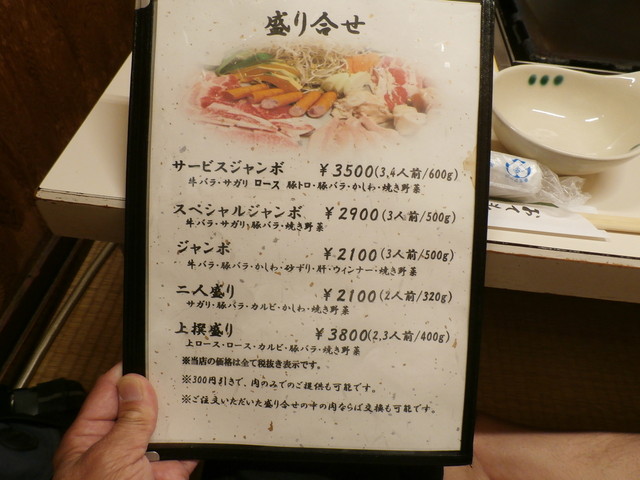 盛り合せ
サービスジャンボ ¥3500(3,4人前/600g)
牛バラ・サガリ ロース 豚トロ・豚バラ・かしわ・焼き野菜
スペシャルジャンボ ¥2900(3人前/500g)
牛バラ・サガリ・豚バラ・焼き野菜
ジャンボ ¥2100(3人前/500g)
牛バラ・豚バラ・かしわ・砂ずり・肝・ウィンナー・焼き野菜
二人盛り ¥2100(2人前/320g)
サガリ・豚バラ・カルビ・かしわ・焼き野菜
上撰盛り ¥3800(2,3人前/400g)
上ロース・ロース・カルビ・豚バラ・焼き野菜
※当店の価格は全て税抜き表示です。
※300円引きで、肉のみでのご提供も可能です。
※ご注文いただいた盛り合せの中の肉ならば交換も可能です。